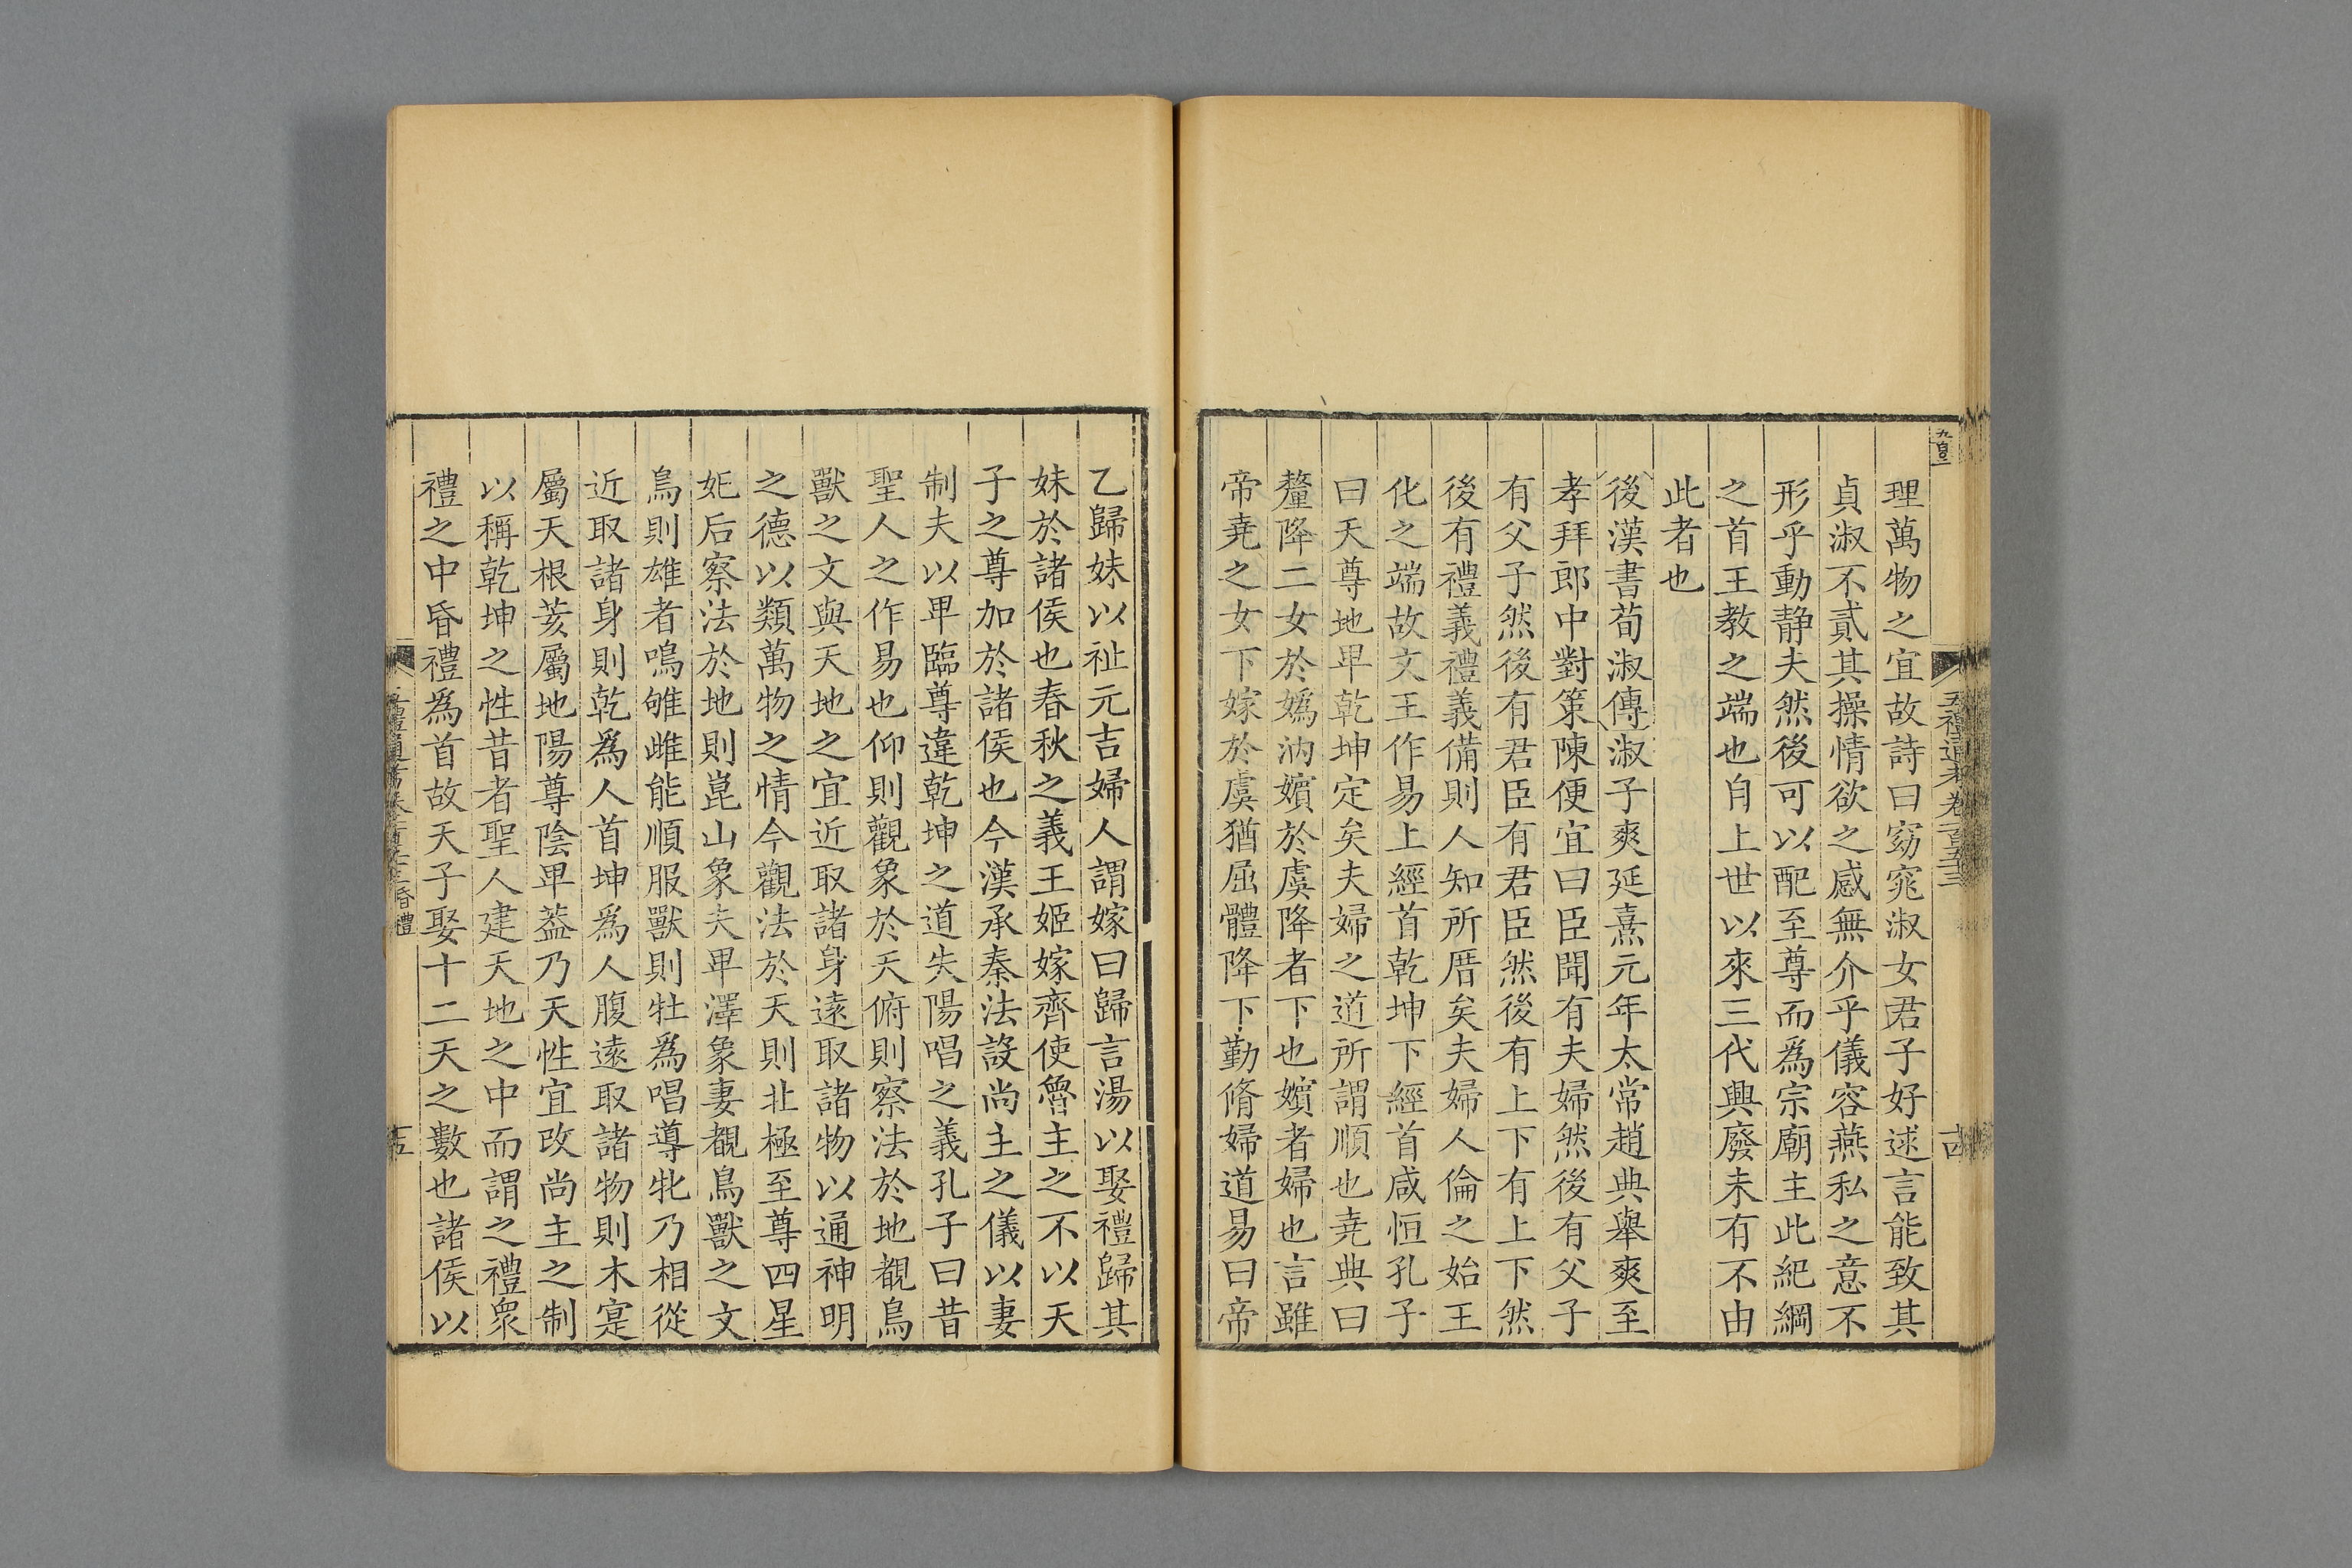 理萬物之宜故詩曰窈窕淑女君子好逑言能致其
貞淑不貳其操情欲之感無介乎儀容燕私之意不
形乎動静夫然後可以配至尊而爲宗廟主此紀綱
之首王教之端也自上世以來三代興廢未有不由
此者也
後漢書荀淑傳淑子爽延熹元年太常趙典舉爽至
孝拜郎中對策陳便宜曰臣聞有夫婦然後有父子
有父子然後有君臣有君臣然後有上下有上下然
後有禮義禮義備則人知所厝矣夫婦人倫之始王
化之端故文王作易上經首乾坤下經首咸恒孔子
曰天尊地卑乾坤定矣夫婦之道所謂順也堯典曰
釐降二女於嬀汭嬪於虞降者下也嬪者婦也言雖
帝堯之女下嫁於虞猶屈體降下勤脩婦道易曰帝
五禮通考卷一百五十三
十四
乙歸妹以祉元吉婦人謂嫁曰歸言湯以娶禮歸其
妹於諸侯也春秋之義王姬嫁齊使魯主之不以天
子之尊加於諸侯也今漢承秦法設尚主之儀以妻
制夫以卑臨尊違乾坤之道失陽唱之義孔子曰昔
聖人之作易也仰則觀象於天俯則察法於地覩鳥
獸之文與天地之宜近取諸身遠取諸物以通神明
之德以類萬物之情今觀法於天則北極至尊四星
妃后察法於地則崑山象夫卑澤象妻覩鳥獸之文
鳥則雄者鳴雊雌能順服獸則牡爲唱導牝乃相從
近取諸身則乾爲人首坤爲人腹遠取諸物則木寔
屬天根荄屬地陽尊陰卑葢乃天性宜改尚主之制
以稱乾坤之性昔者聖人建天地之中而謂之禮衆
禮之中昏禮爲首故天子娶十二天之數也諸侯以
昏禮
十五